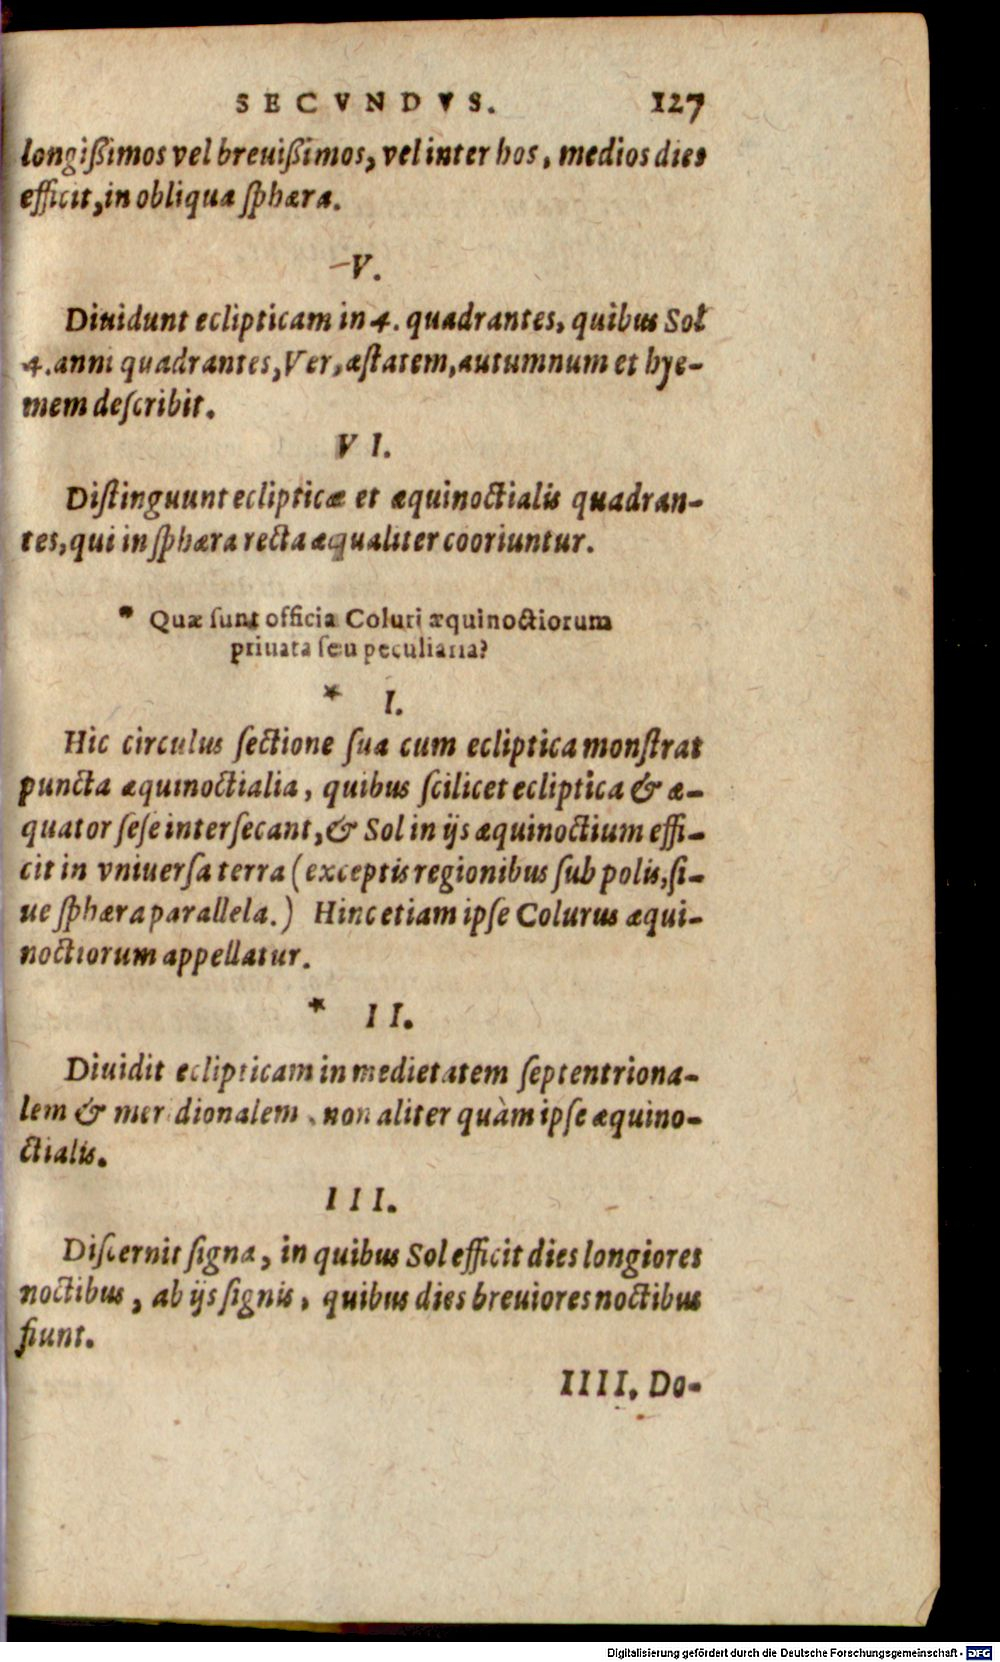 SECVNDVS. 127
longißimos vel breuißimos, vel inter hos, medios dies
efficit, in obliqua ſphæra.
V.
Diuidunt eclipticam in 4. quadrantes, quibus Sol
4. anni quadrantes, Ver, æſtatem, autumnum et hye-
mem deſcribit.
VI.
Diſtinguunt eclipticæ et æquinoctialis quadran-
tes, qui in ſphæra recta æqualiter cooriuntur.
* Quæ ſunt officia Coluri æquinoctiorum
priuata ſeu peculiaria?
* I.
Hic circulus ſectione ſua cum ecliptica monſtrat
puncta æquinoctialia, quibus ſcilicet ecliptica & æ-
quator ſeſe interſecant, & Sol in ijs æquinoctium effi-
cit in vniuerſa terra (exceptis regionibus ſub polis, ſi-
ue ſphæra parallela.) Hinc etiam ipſe Colurus æqui-
noctiorum appellatur.
* II.
Diuidit eclipticam in medietatem ſeptentriona-
lem & meridionalem, non aliter quàm ipſe æquino-
ctialis.
III.
Diſcernit ſigna, in quibus Sol efficit dies longiores
noctibus, ab ijs ſignis, quibus dies breuiores noctibus
fiunt.
IIII. Do-
Digitalisierung gefördert durch die Deutsche Forschungsgemeinschaft - DFG